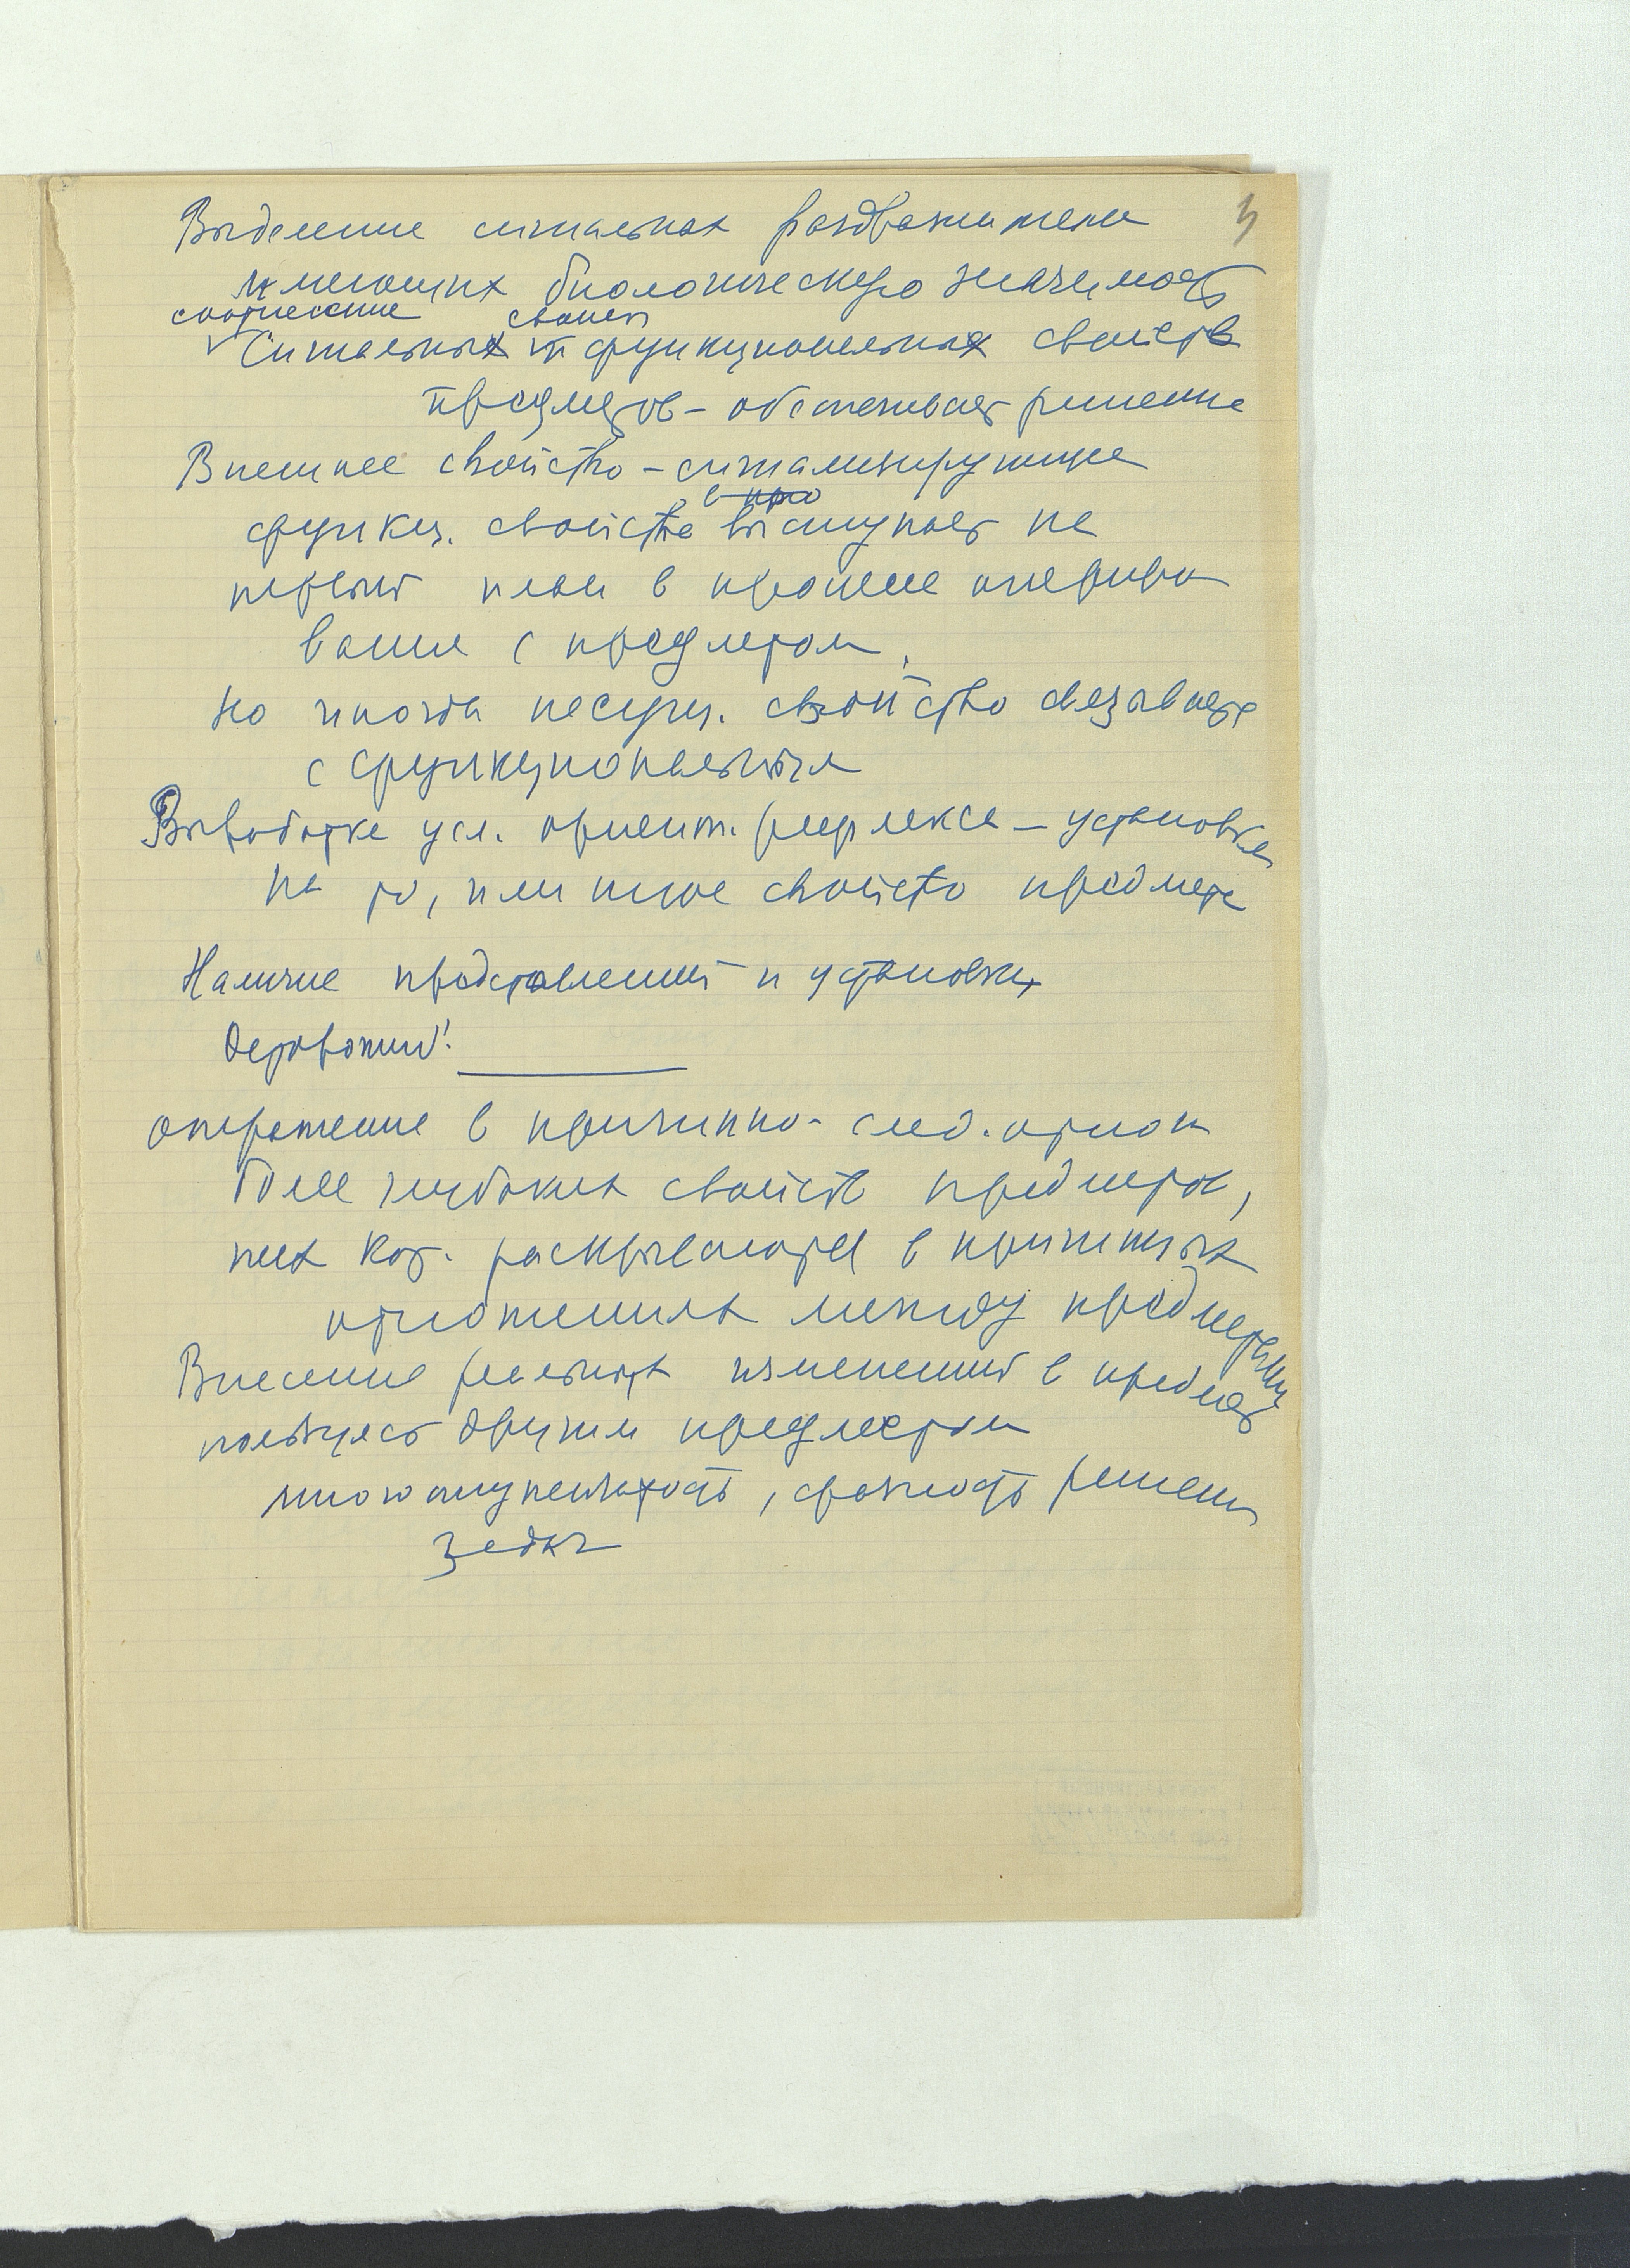 Выделение сигнальных раздражителей
имеющих биологическую значимость
соотнесение свойств
Сигнальных и функциональных свойств
предметов – обеспечивает решение
Внешнее свойство – сигнализирующее
в про
функц. свойство выступает на
первый план в процессе опериро
вания с предметом,
но иногда несущ. свойство связывается
с функциональным
Выработка усл. ориент. рефлекса – установка
на то, или иное свойство предмета
Наличие представлений и установки
отражение в причинно-след. отнош
более глубоких свойств предметов,
них кот. раскрываются в причинных
отношениях между предметами
Внесение реальных изменений в предмет
пользуясь другим предметом
многоступенчатость, фазность решения
задач